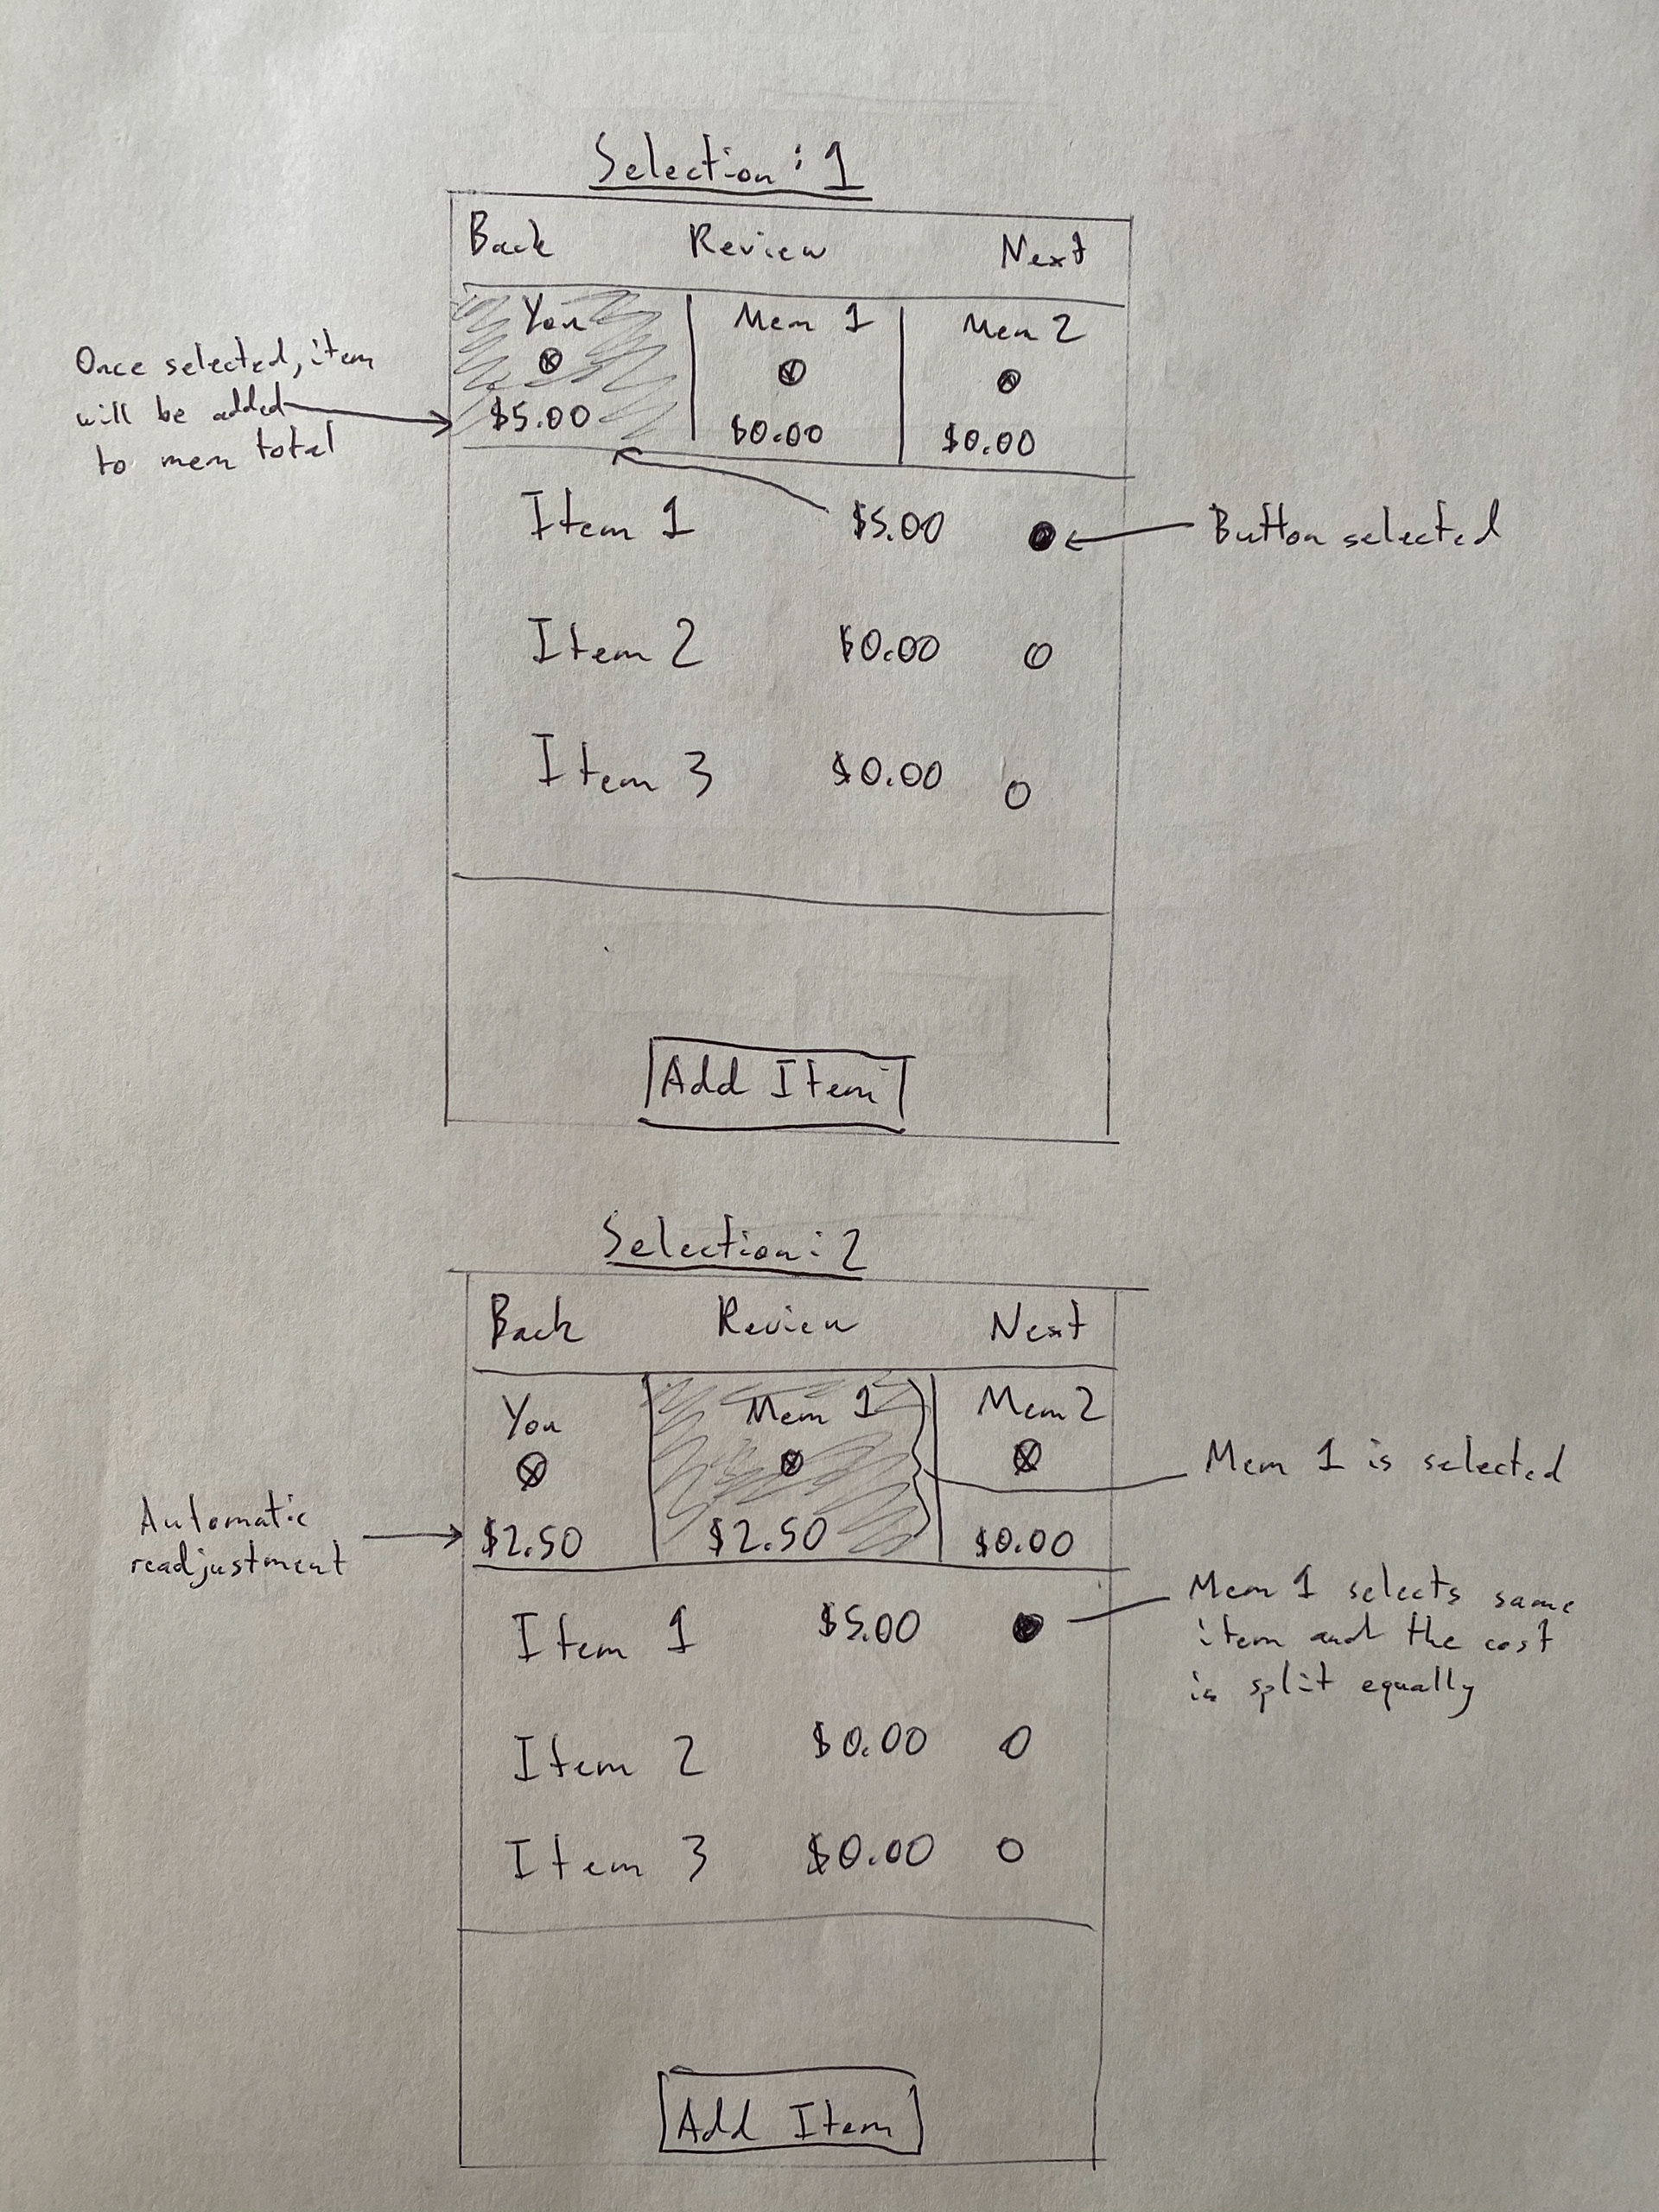 Selection: 1
Back Review Next
You Mem 1 Mem 2
$5.00 $0.00 $0.00
Once selected, item
will be added
to mem total
Item 1 $5.00
Button selected
Item 2 $0.00
Item 3 $0.00
Add Item
Selection: 2
Back Review Next
You Mem 1 Mem 2
$2.50 $2.50 $0.00
Mem 1 is selected
Automatic
readjustment
Item 1 $5.00
Mem 1 selects same
item and the cost
is split equally
Item 2 $0.00
Item 3 $0.00
Add Item